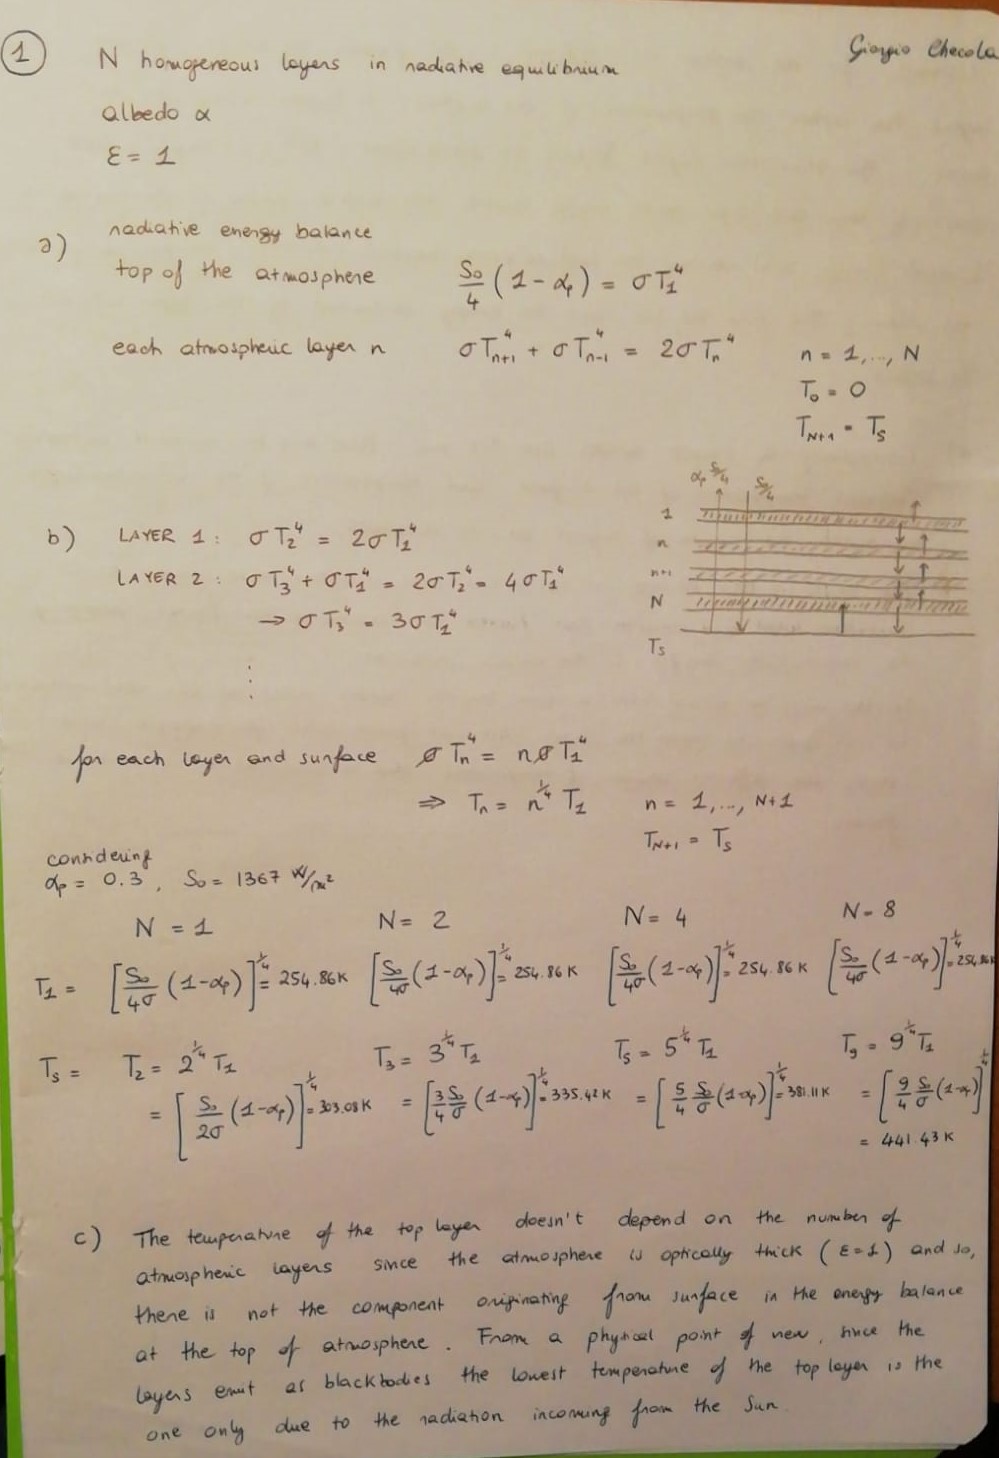 Giorgio Checola
1
N homogeneous layers in radiative equilibrium
albedo α
ε = 1
a)
radiative energy balance
top of the atmosphere S₀/4 (1 - αₚ) = σT₁⁴
each atmospheric layer n σTₙ₊₁⁴ + σTₙ₋₁⁴ = 2σTₙ⁴ n = 1,..., N
T₀ = 0
T_N+1 = Tₛ
αₚ S₀/4 S₀/4
1
n
n+1
N
Tₛ
b) LAYER 1: σT₂⁴ = 2σT₁⁴
LAYER 2: σT₃⁴ + σT₁⁴ = 2σT₂⁴ = 4σT₁⁴
→ σT₃⁴ = 3σT₁⁴
⋮
for each layer and surface σTₙ⁴ = nσT₁⁴
⇒ Tₙ = n^1/4 T₁ n = 1,..., N+1
T_N+1 = Tₛ
considering
αₚ = 0.3, S₀ = 1367 W/m²
N = 1 N = 2 N = 4 N = 8
T₁ = [S₀/4σ (1-αₚ)]^1/4 = 254.86 K [S₀/4σ (1-αₚ)]^1/4 = 254.86 K [S₀/4σ (1-αₚ)]^1/4 = 254.86 K [S₀/4σ (1-αₚ)]^1/4 = 254.86K
Tₛ = T₂ = 2^1/4 T₁ T₃ = 3^1/4 T₁ T₅ = 5^1/4 T₁ T₉ = 9^1/4 T₁
= [S₀/2σ (1-αₚ)]^1/4 = 303.08 K = [3/4 S₀/σ (1-αₚ)]^1/4 = 335.42 K = [5/4 S₀/σ (1-αₚ)]^1/4 = 381.11 K = [9/4 S₀/σ (1-αₚ)]^1/4
= 441.43 K
c) The temperature of the top layer doesn't depend on the number of
atmospheric layers since the atmosphere is optically thick (ε=1) and so,
there is not the component originating from surface in the energy balance
at the top of atmosphere. From a physical point of view, since the
layers emit as blackbodies the lowest temperature of the top layer is the
one only due to the radiation incoming from the Sun.